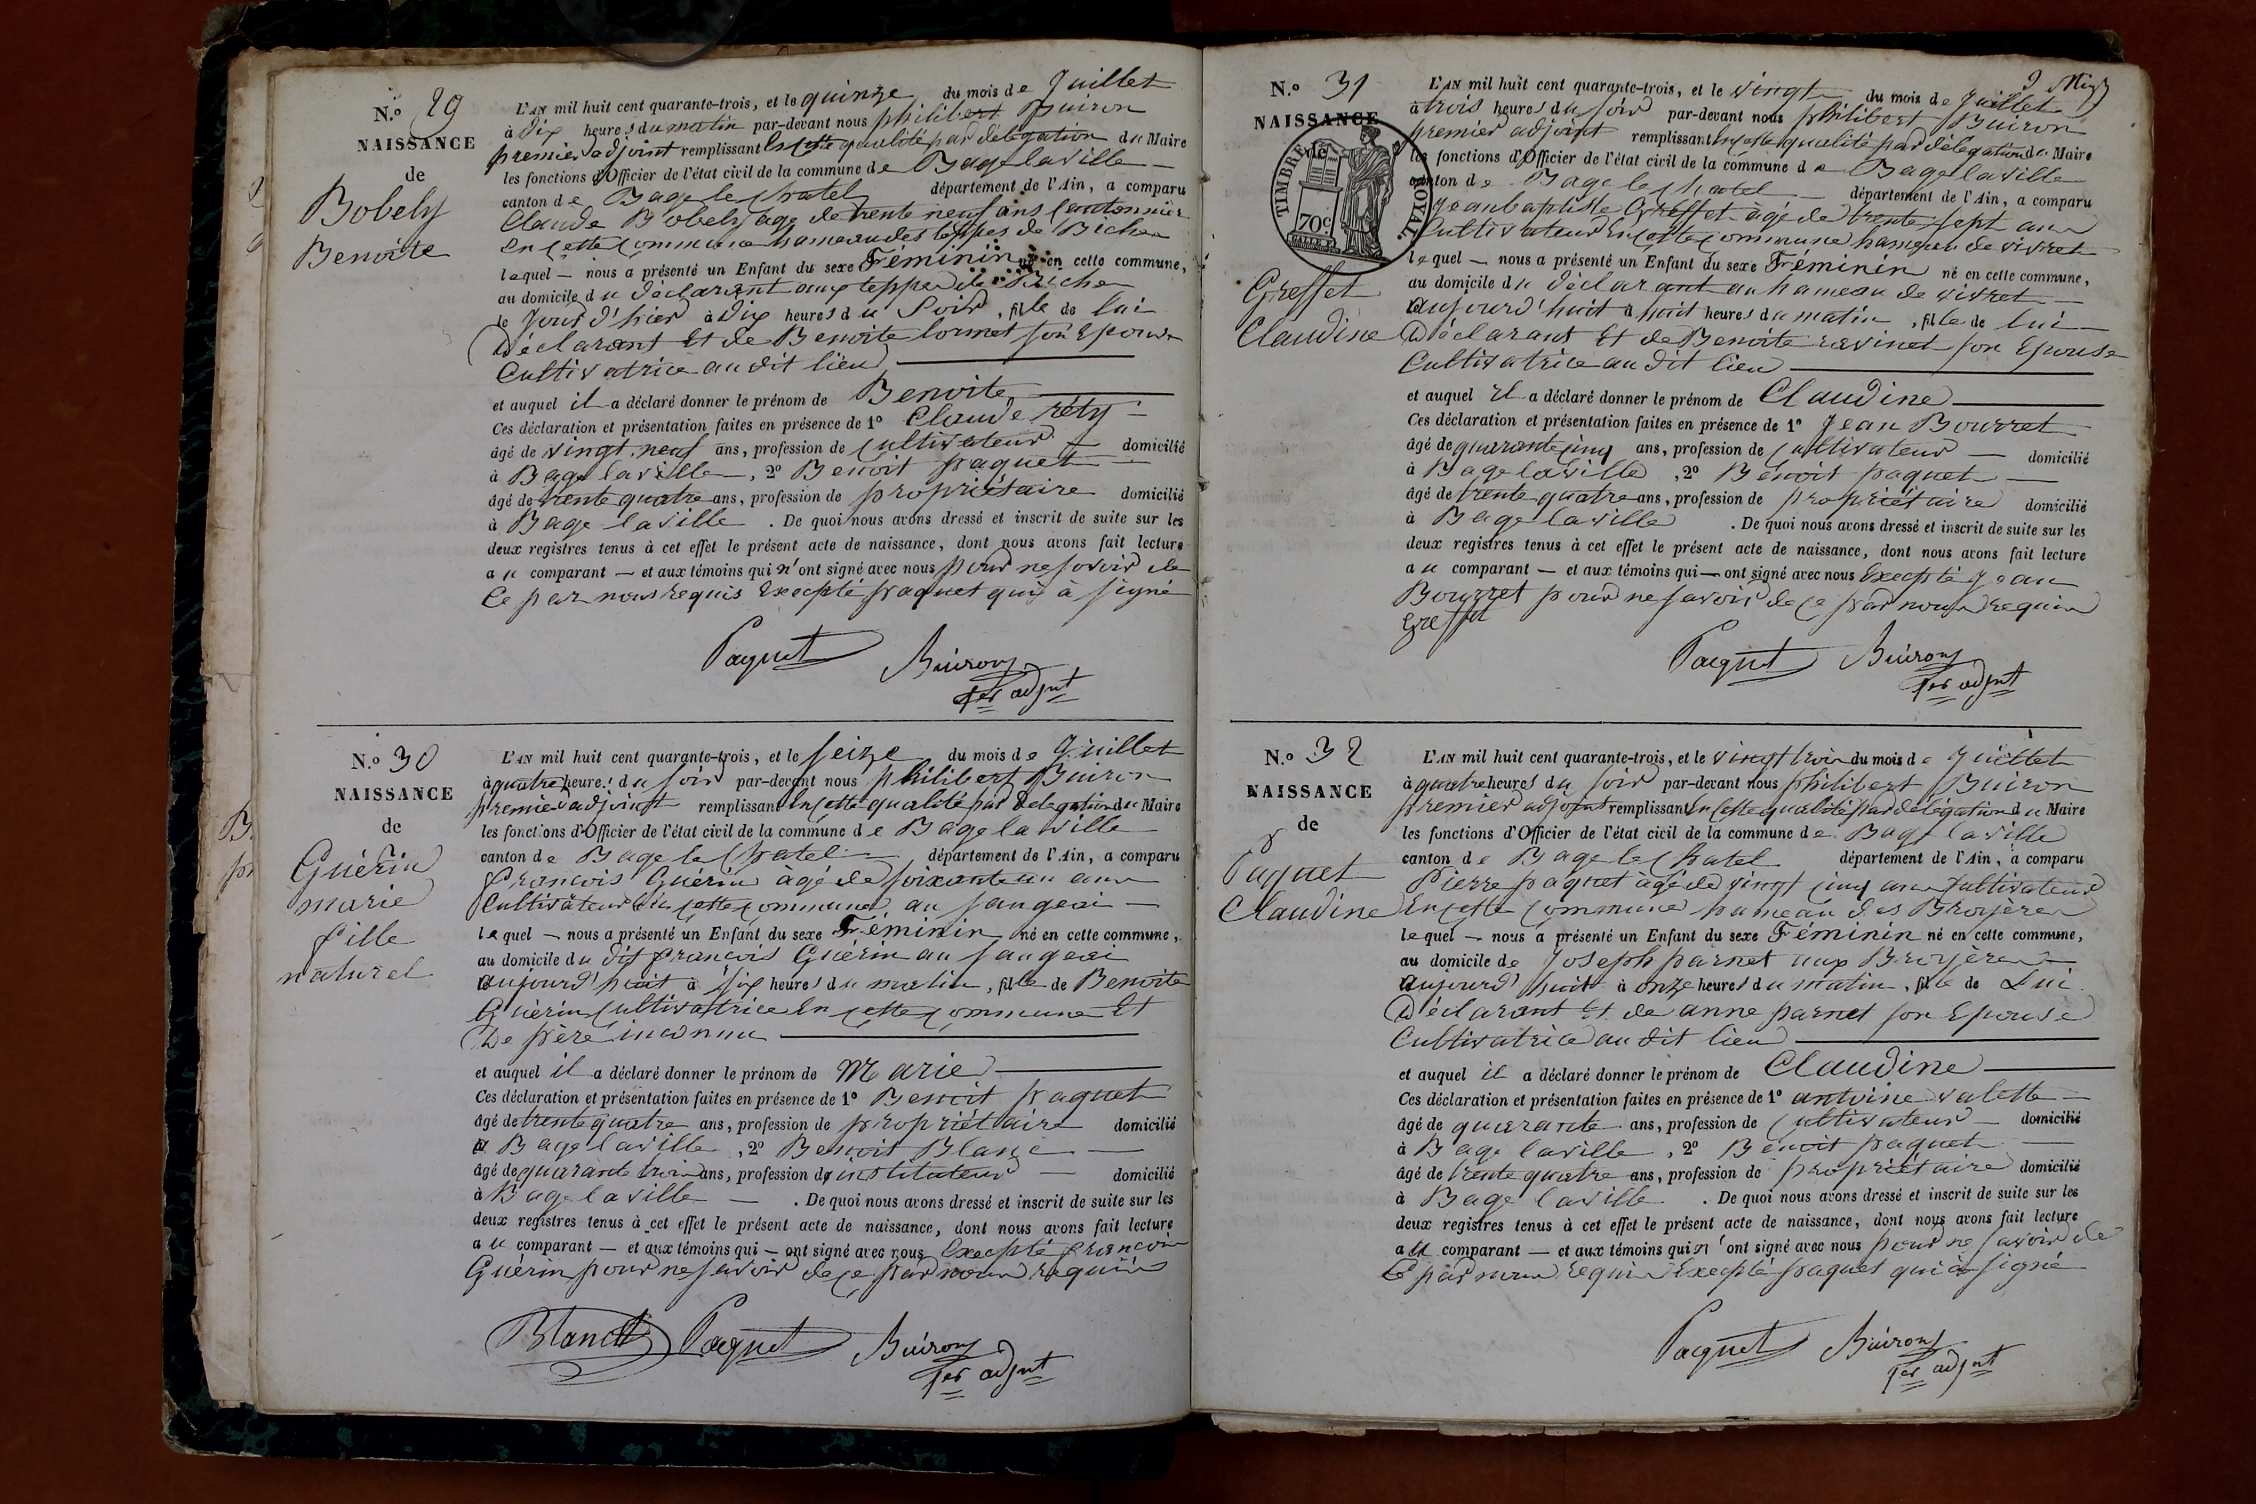 N.o 29
NAISSANCE
de
Bobely
Benoite
L'AN mil huit cent quarante-trois, et le quinze du mois de Juillet
à dix heures du matin par-devant nous philibert Buiron
premier adjoint remplissant en cette qualité par délégation du Maire
les fonctions d'Officier de l'état civil de la commune de Bage la ville
canton de Bage le Chatel département de l'Ain, a comparu
Claude Bobely age de trente neuf ans Cantonnier
en cette commune hameau des teppes de Biche
lequel — nous a présenté un Enfant du sexe Féminin né en cette commune,
au domicile du déclarant aux teppes de Biche
le Jour d'hier à dix heures du Soir, fille de lui
Déclarant Et de Benoite lormet son Epouse
Cultivatrice au dit lieu
et auquel il a déclaré donner le prénom de Benoite
Ces déclaration et présentation faites en présence de 1o Claude réty
âgé de vingt neuf ans, profession de Cultivateur domicilié
à Bage la ville, 2o Benoit paquet
âgé de trente quatre ans, profession de propriétaire domicilié
à Bage la ville. De quoi nous avons dressé et inscrit de suite sur les
deux registres tenus à cet effet le présent acte de naissance, dont nous avons fait lecture
au comparant — et aux témoins qui n'ont signé avec nous pour ne savoir de
Ce par nous requis Excepté paquet qui à signé
Paquet Buiron
1er adjnt
N.o 30
NAISSANCE
de
Guérin
marie
fille
naturel
L'AN mil huit cent quarante-trois, et le seize du mois de Juillet
à quatre heures du soir par-devant nous philibert Buiron
premier adjoint remplissant en cette qualité par délégation du Maire
les fonctions d'Officier de l'état civil de la commune de Bage la ville
canton de Bage le Chatel département de l'Ain, a comparu
francois Guérin àgé de soixante un ans
Cultivateur en cette commune au saugeai
lequel — nous a présenté un Enfant du sexe Féminin né en cette commune,
au domicile du dit francois Guérin au saugeai
aujourd'huit à six heures du matin, fille de Benoite
Guérin cultivatrice en cette commune Et
De père inconnu
et auquel il a déclaré donner le prénom de Marie
Ces déclaration et présentation faites en présence de 1o Benoit paquet
âgé de trente quatre ans, profession de propriétaire domicilié
à Bage la ville, 2o Benoit Blanc
âgé de quarante trois ans, profession de instituteur domicilié
à Bage la ville. De quoi nous avons dressé et inscrit de suite sur les
deux registres tenus à cet effet le présent acte de naissance, dont nous avons fait lecture
au comparant — et aux témoins qui — ont signé avec nous Excepté francois
Guérin pour ne savoir de ce par nous requis
Blanc Paquet Buiron
1er adjnt
N.o 31
NAISSANCE
de
TIMBRE ROYAL
70c
Greffet
Claudine
L'AN mil huit cent quarante-trois, et le vingt du mois de Juillet
à trois heures du soir par-devant nous philibert Buiron
premier adjoint remplissant en cette qualité par délégation du Maire
les fonctions d'Officier de l'état civil de la commune de Bage la ville
canton de Bage le Chatel département de l'Ain, a comparu
Jean baptiste Greffet àgé de trente sept ans
Cultivateur en cette commune hameau de vivret
lequel — nous a présenté un Enfant du sexe Féminin né en cette commune,
au domicile du déclarant au hameau de vivret
aujourd'huit à huit heures du matin, fille de lui
Déclarant Et de Benoite ravinet son Epouse
Cultivatrice au dit lieu
et auquel il a déclaré donner le prénom de Claudine
Ces déclaration et présentation faites en présence de 1o Jean Bourret
âgé de quarante cinq ans, profession de Cultivateur domicilié
à Bage la ville, 2o Benoit paquet
âgé de trente quatre ans, profession de propriétaire domicilié
à Bage la ville. De quoi nous avons dressé et inscrit de suite sur les
deux registres tenus à cet effet le présent acte de naissance, dont nous avons fait lecture
au comparant — et aux témoins qui — ont signé avec nous Excepté Jean
Bourret pour ne savoir de ce par nous requis
Greffet
Paquet Buiron
1er adjnt
N.o 32
NAISSANCE
de
Paquet
Claudine
L'AN mil huit cent quarante-trois, et le vingt trois du mois de Juillet
à quatre heures du soir par-devant nous philibert Buiron
premier adjoint remplissant en cette qualité par délégation du Maire
les fonctions d'Officier de l'état civil de la commune de Bage la ville
canton de Bage le Chatel département de l'Ain, a comparu
Pierre paquet àgé de vingt cinq ans Cultivateur
En cette commune hameau des Broyères
lequel — nous a présenté un Enfant du sexe Féminin né en cette commune,
au domicile de Joseph parnet aux Broyères
aujourd'huit à onze heures du matin, fille de Lui
Déclarant Et de anne parnet son Epouse
Cultivatrice au dit lieu
et auquel il a déclaré donner le prénom de Claudine
Ces déclaration et présentation faites en présence de 1o antoine valette
âgé de quarante ans, profession de Cultivateur domicilié
à Bage la ville, 2o Benoit paquet
âgé de trente quatre ans, profession de propriétaire domicilié
à Bage la ville. De quoi nous avons dressé et inscrit de suite sur les
deux registres tenus à cet effet le présent acte de naissance, dont nous avons fait lecture
au comparant — et aux témoins qui n'ont signé avec nous pour ne savoir de
Ce par nous requis Excepté paquet qui à signé
Paquet Buiron
1er adjnt